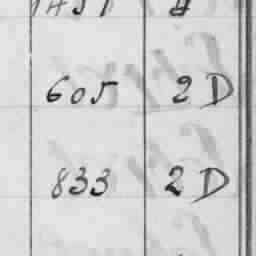 605 2 D
833 2 D